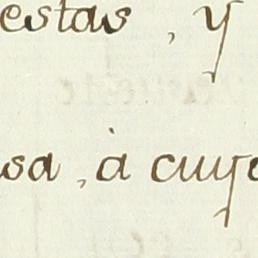 estas, y
sa, à cuye